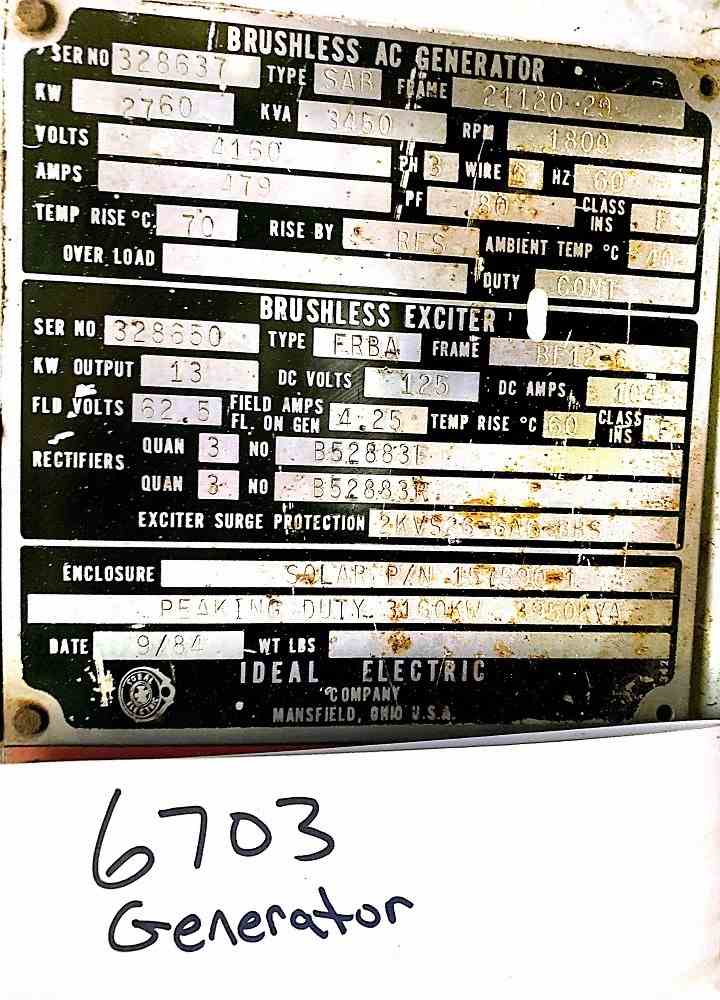 BRUSHLESS AC GENERATOR
SER NO 328637 TYPE SAB FRAME 21120-29
KW 2760 KVA 3450 RPM 1800
VOLTS 4160 PH 3 WIRE 6 HZ 60
AMPS 479 PF .80 CLASS INS F
TEMP RISE °C 70 RISE BY RES AMBIENT TEMP °C 40
OVER LOAD DUTY CONT
BRUSHLESS EXCITER
SER NO. 328650 TYPE ERBA FRAME
KW OUTPUT 13 DC VOLTS 125 DC AMPS. 104
FLD VOLTS 62.5 FIELD AMPS FL. ON GEN 4.25 TEMP RISE °C 60 CLASS INS F
RECTIFIERS QUAN 3 NO B52883F
QUAN 3 NO B52883R
EXCITER SURGE PROTECTION
ENCLOSURE SOLAR P/N
PEAKING DUTY 3160KW 3950KVA
DATE 9/84 WT LBS
IDEAL ELECTRIC
COMPANY
MANSFIELD, OHIO U.S.A.
6703
Generator